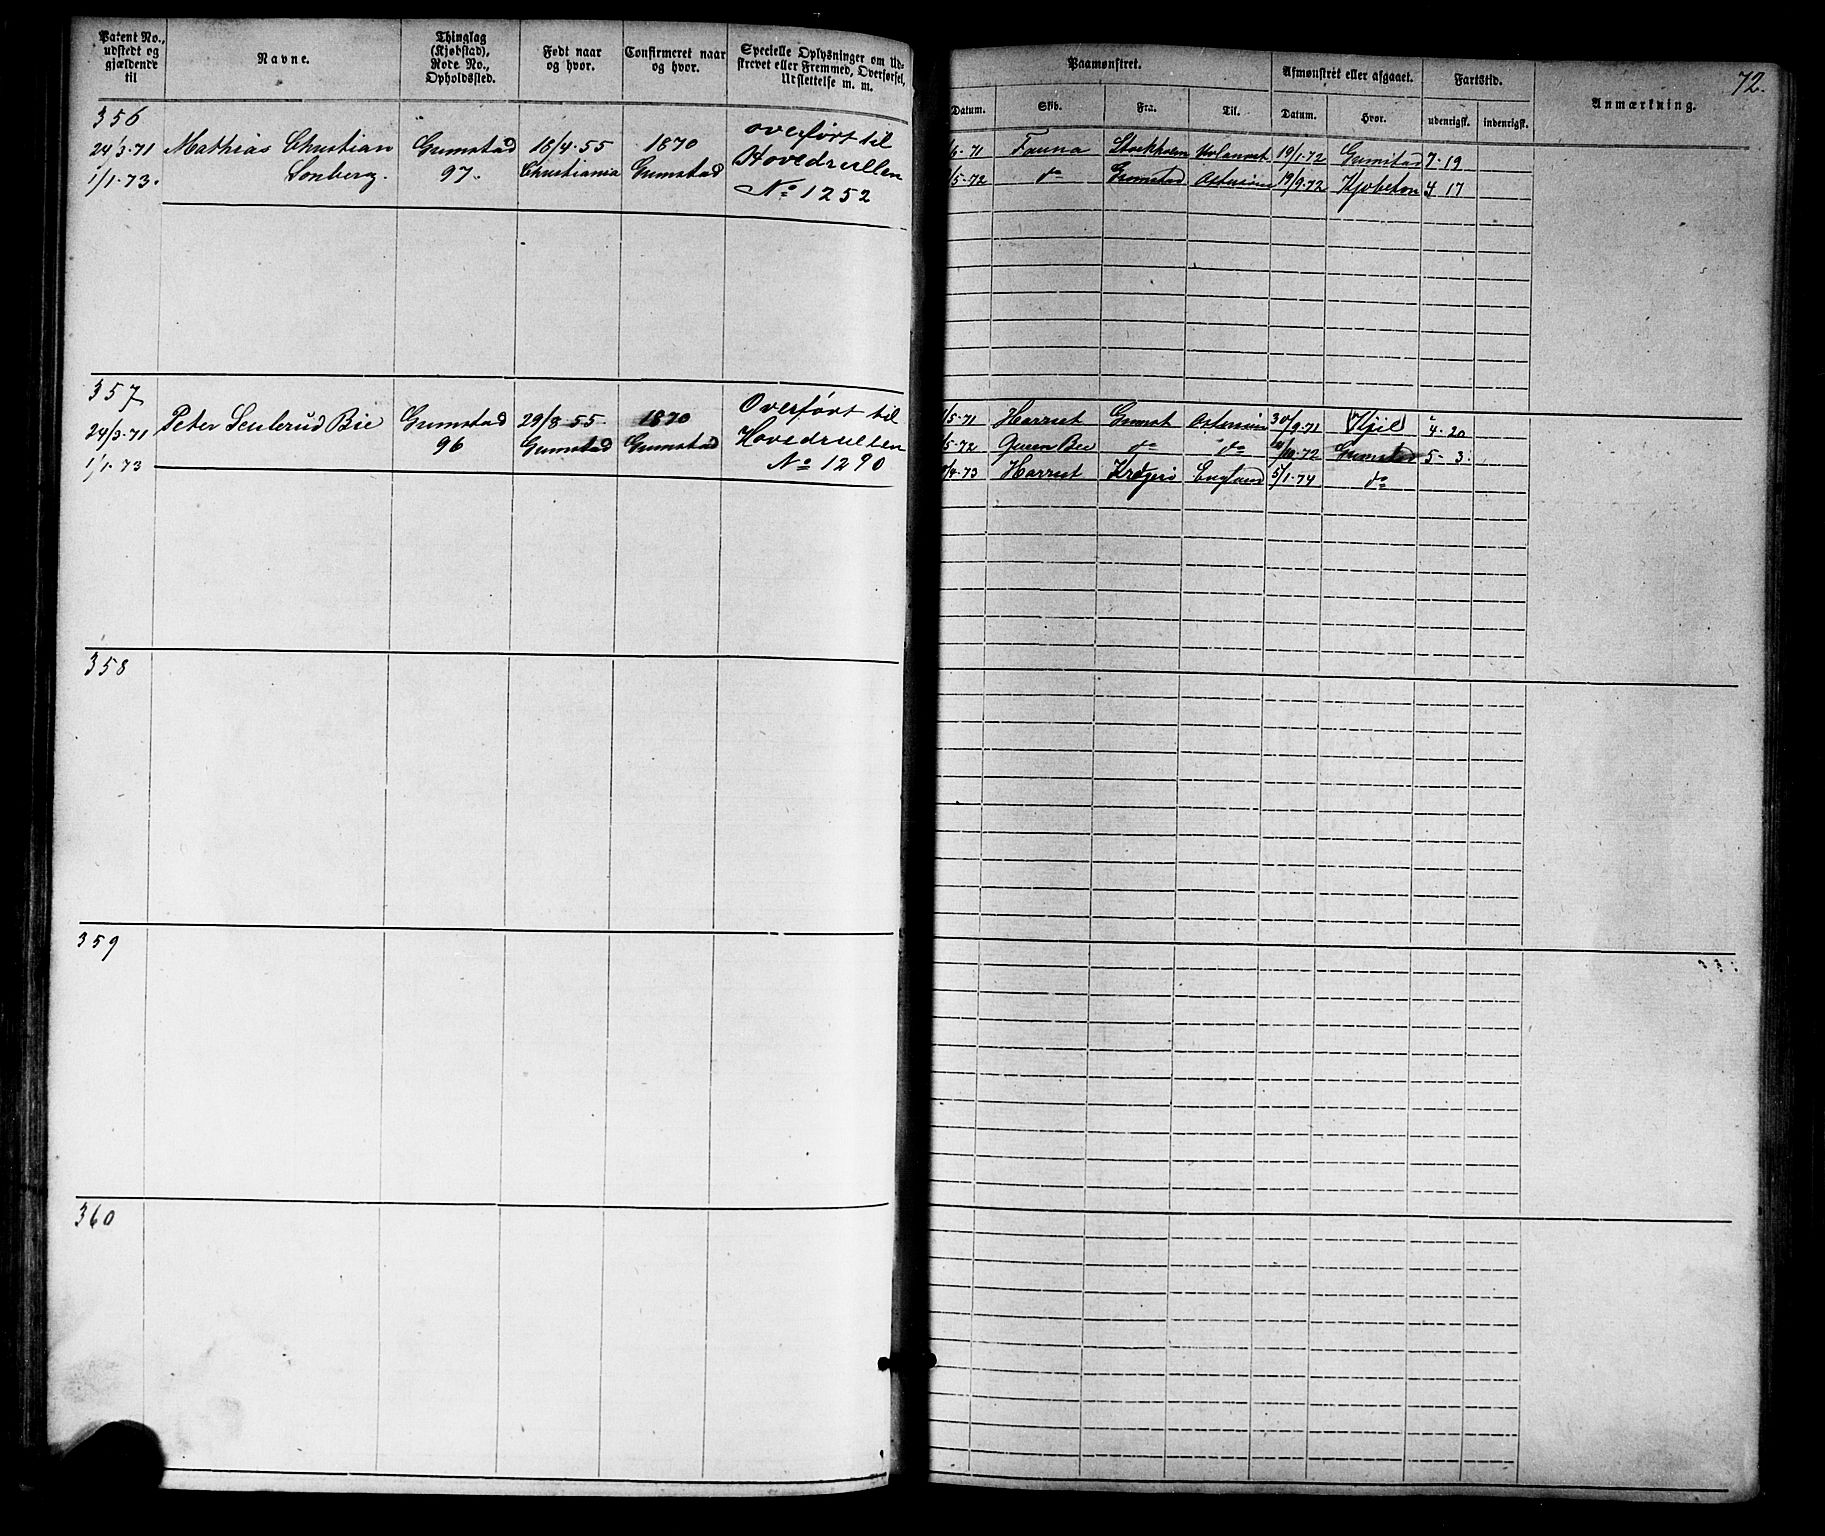 Patent No., udstedt og gjældende til
Navne.
Thinglag (Kjøbstad), Rode No., Opholdssted.
Født naar og hvor.
Confirmeret naar og hvor.
Specielle Oplysninger om Udskrevet eller Fremmed, Overførsel, Udslettelse m. m.
Paamønstret.
Afmønstret eller afgaaet.
Fartstid.
Anmærkning.
72.
Datum.
Skib.
Fra.
Til.
Datum.
Hvor.
udenrigsk.
indenrigsk.
356
24/3-71
1/1-73.
Mathias Christian
Grimstad
97.
18/4-55
Christiania
1870
Grimstad
overført til
Hovedrullen
No 1252
/6-71 Fauna Stockholm 19/1-72 Grimstad 7-19
/5-72 do Grimstad Østersøen 19/9-72 4 17
357
24/3-71
1/1-73
Peter Bie
Grimstad
96
29/8-55
Grimstad
1870
Grimstad
Overført til
Hovedrullen
No 1290
/5-71 Harriet Grimst Østersøen 30/9-71 Kjil 4-20
/5-72 Queen Bee do do /10-72 Grimstad 5-3
/4-73 Harriet Kragerø England 5/1-74 do
358
359
360